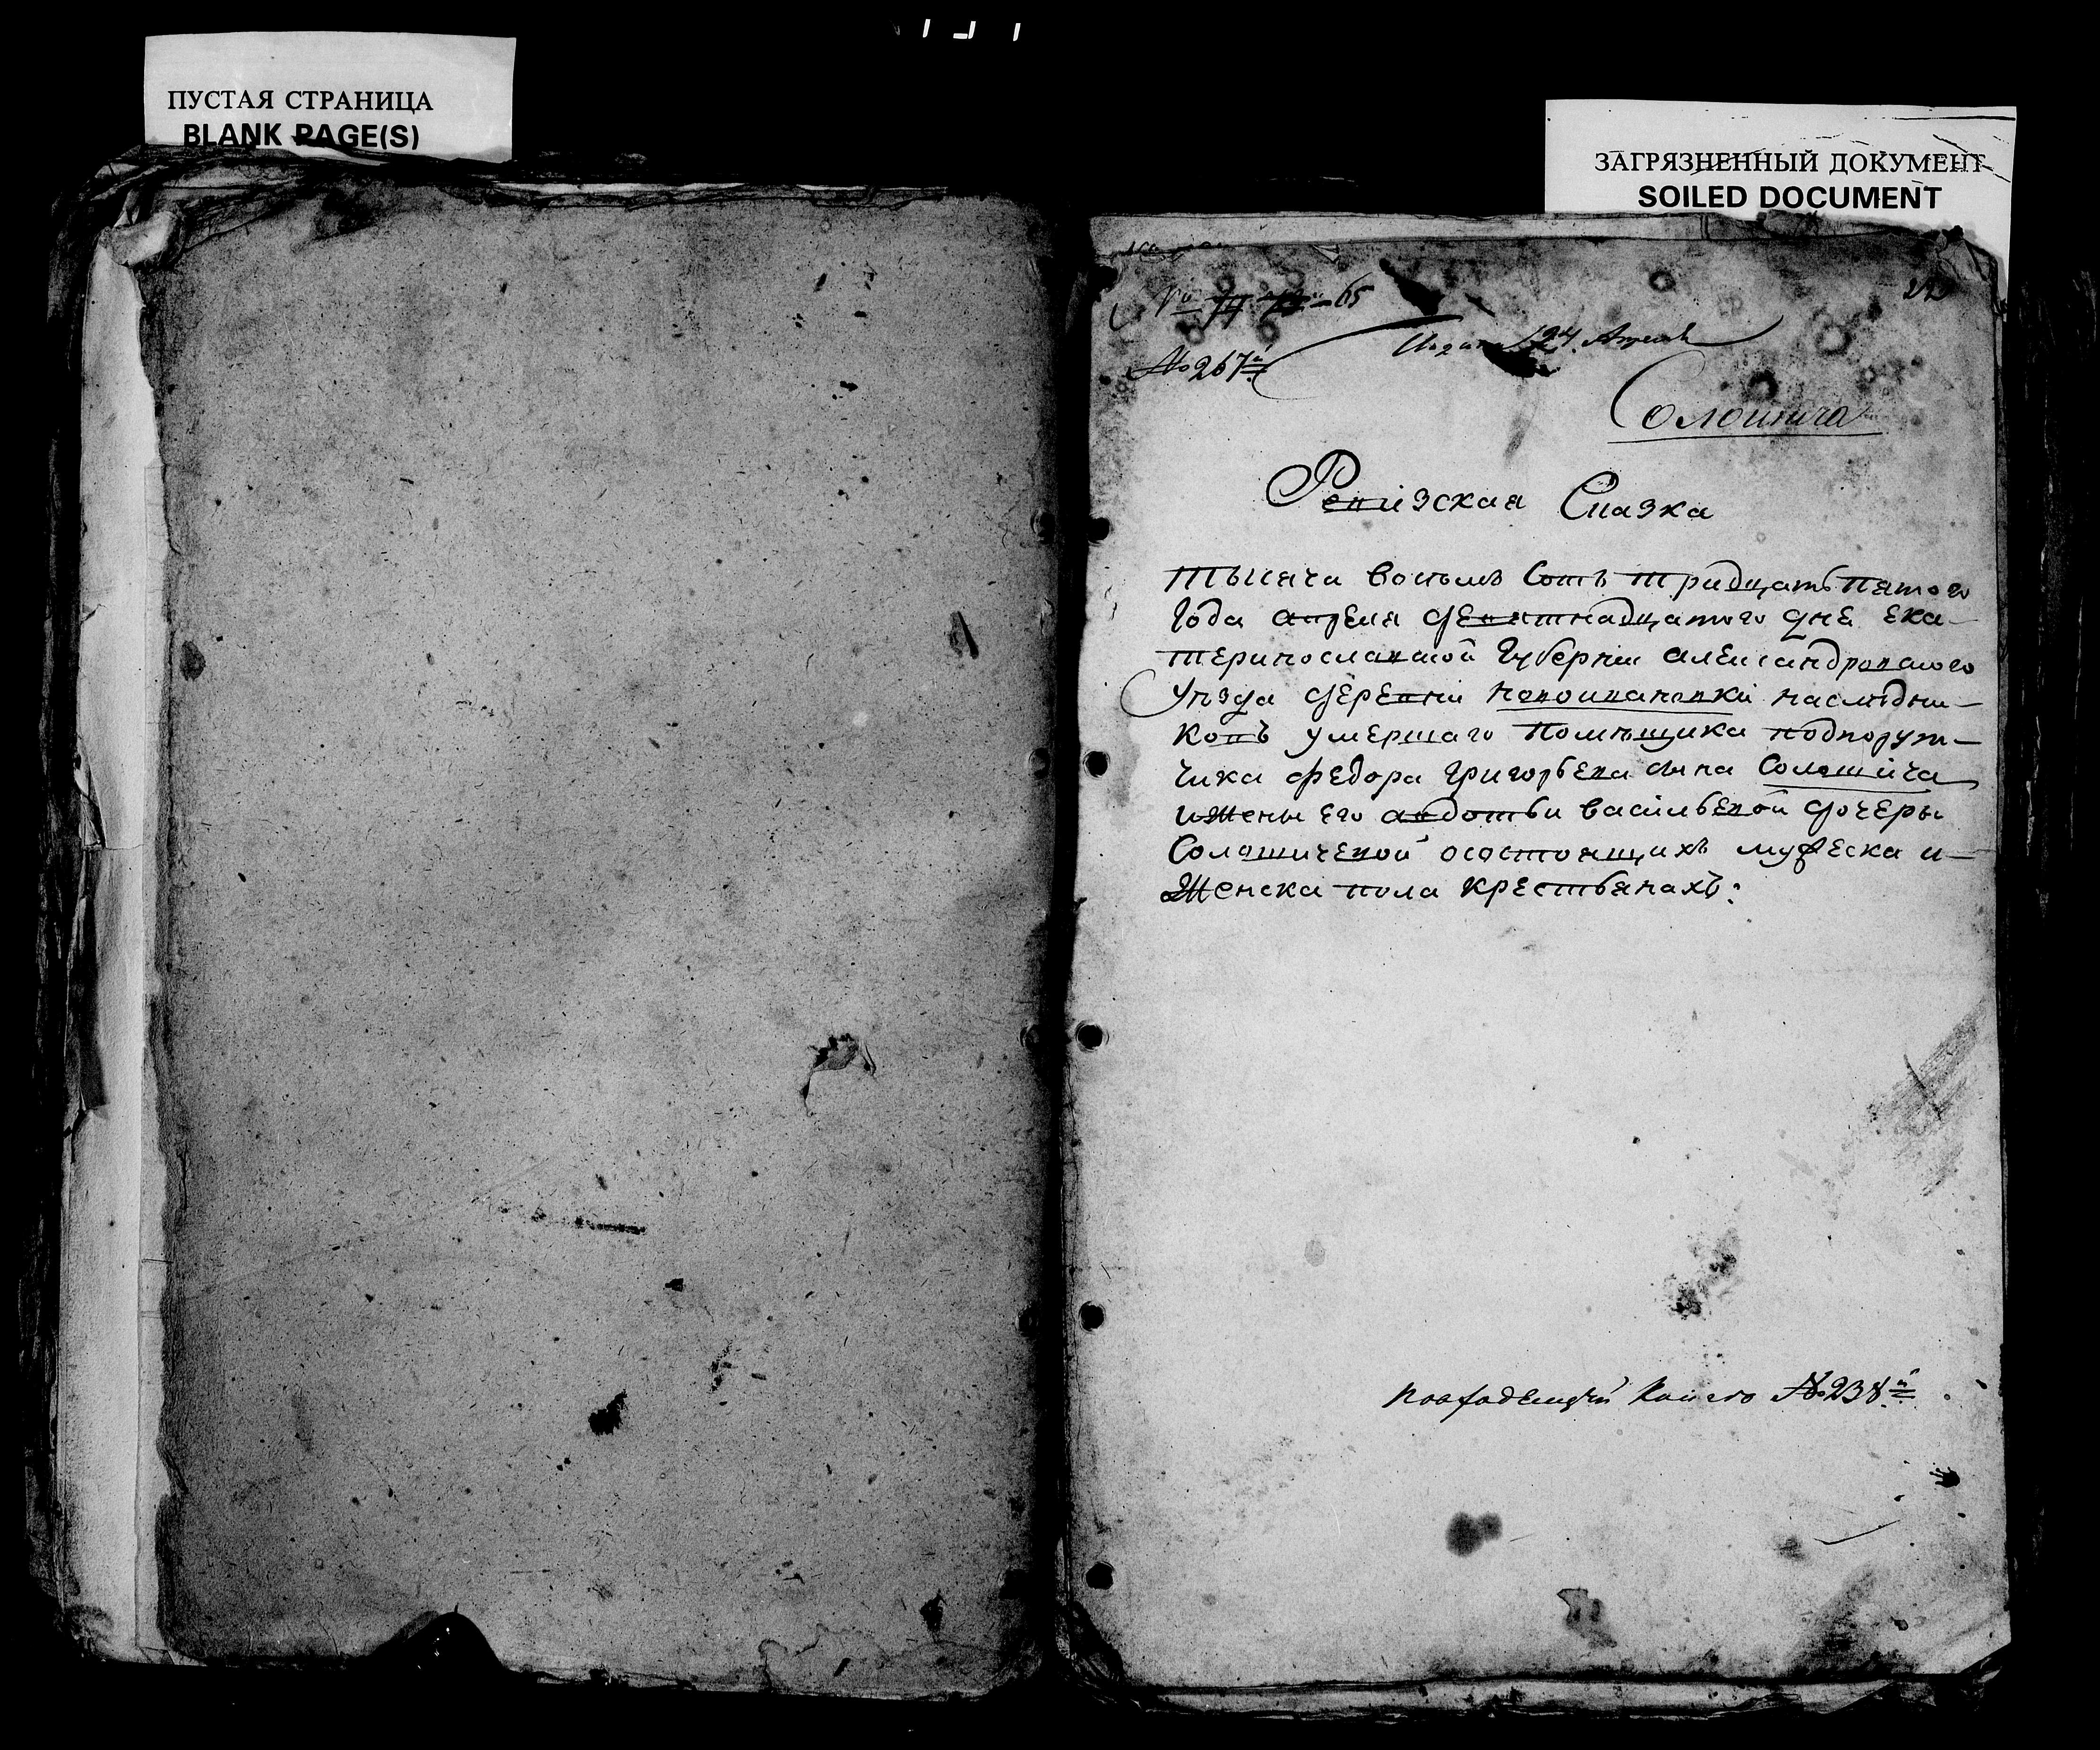 ПУСТАЯ СТРАНИЦА
BLANK PAGE(S)
ЗАГРЯЗНЕННЫЙ ДОКУМЕНТ
SOILED DOCUMENT
65
№ 267й
24. Апреля
Солошича
Ревизская Сказка
тысяча восемь сотъ тридцать пятого
года апреля девятнадцатого дня ека-
теринославской губернии александровского
уезда деревни новоивановки наследни-
ковъ умершаго помещика подпорут-
чика федора григорьева сына Солошича
и жены его авдотьи васильевой дочеры
Солошичевой осостоящихъ мужеска и-
женска пола крестьянахъ:
№ 238й